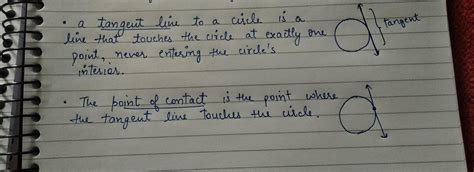 • a tangent line to a circle is a
line that touches the circle at exactly one
point, never entering the circle's
interior.
tangent
• The point of contact is the point where
the tangent line touches the circle.